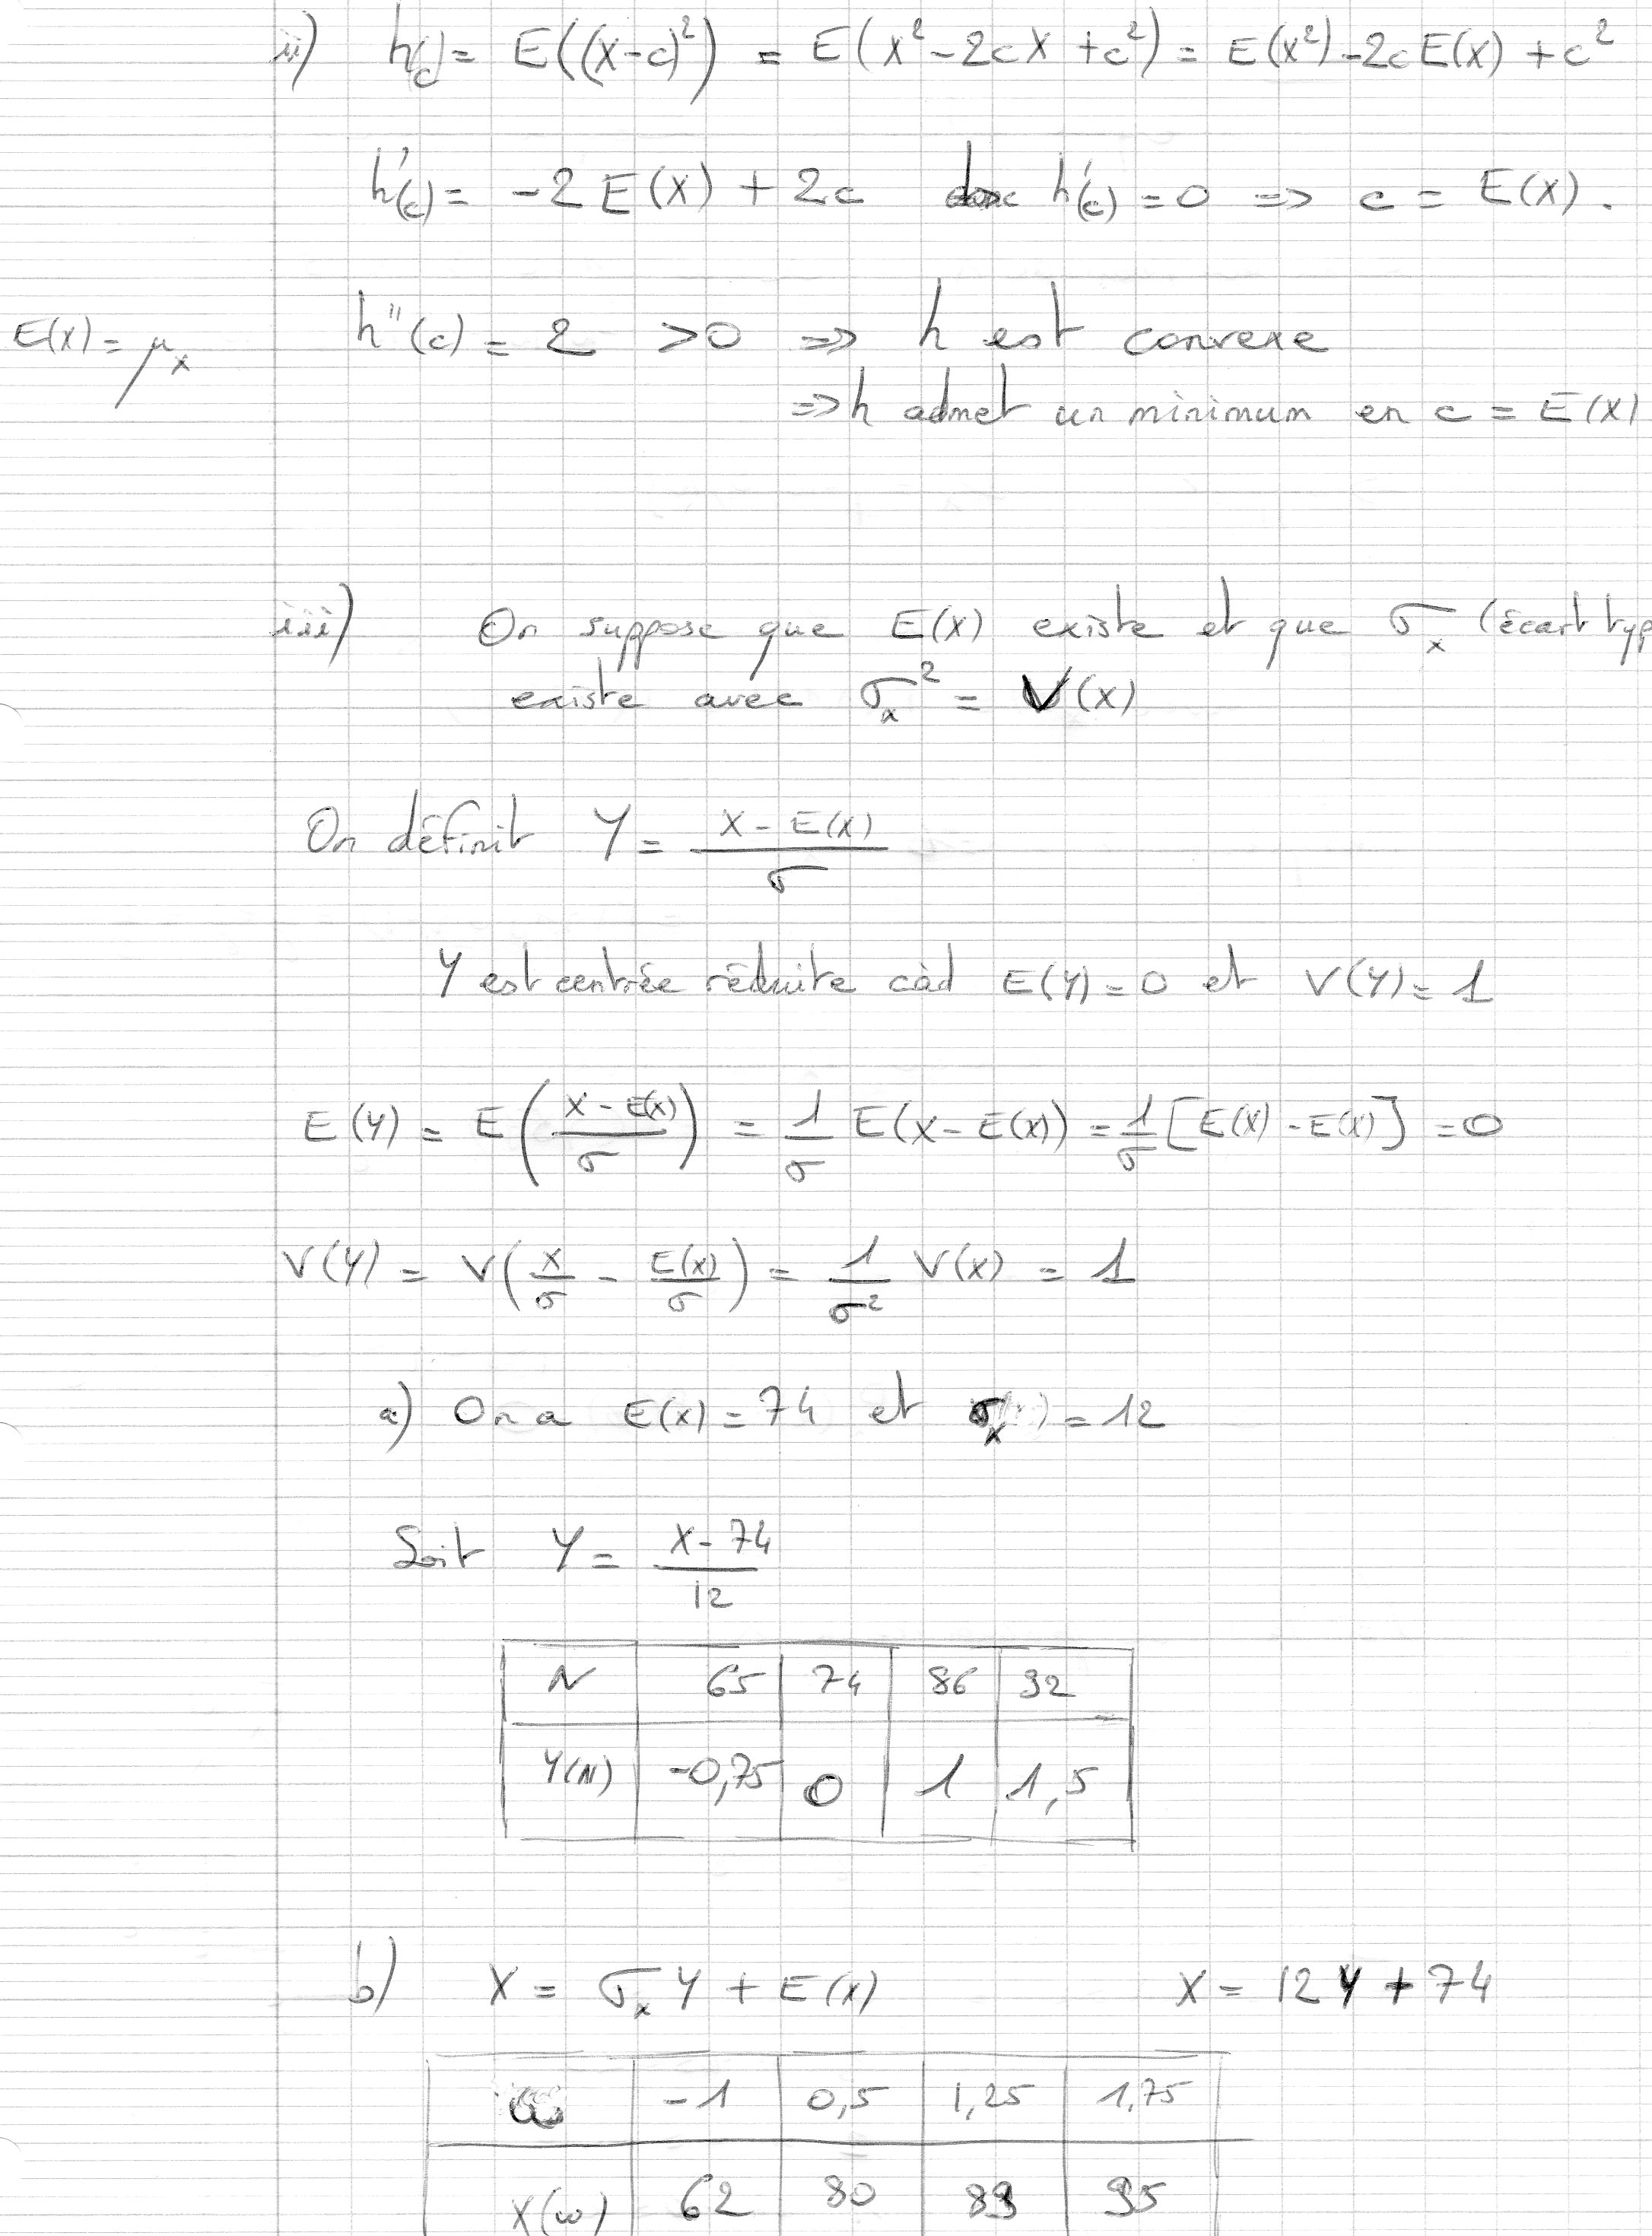 ii) h(c) = E((X-c)²) = E(X² - 2cX + c²) = E(X²) - 2c E(X) + c²
h'(c) = -2 E(X) + 2c donc h'(c) = 0 => c = E(X).
E(X) = μ_x h''(c) = 2 > 0 => h est convexe
=> h admet un minimum en c = E(X)
iii) On suppose que E(X) existe et que σ_x (écart typ
existe avec σ_x² = V(X)
On définit Y = (X - E(X)) / σ
Y est centrée réduite càd E(Y) = 0 et V(Y) = 1
E(Y) = E((X - E(X)) / σ) = 1/σ E(X - E(X)) = 1/σ [E(X) - E(X)] = 0
V(Y) = V(X/σ - E(X)/σ) = 1/σ² V(X) = 1
a) On a E(X) = 74 et σ_x = 12
Soit Y = (X - 74) / 12
N 65 74 86 92
Y(N) -0,75 0 1 1,5
b) X = σ_x Y + E(X) X = 12Y + 74
ω -1 0,5 1,25 1,75
X(ω) 62 80 89 95